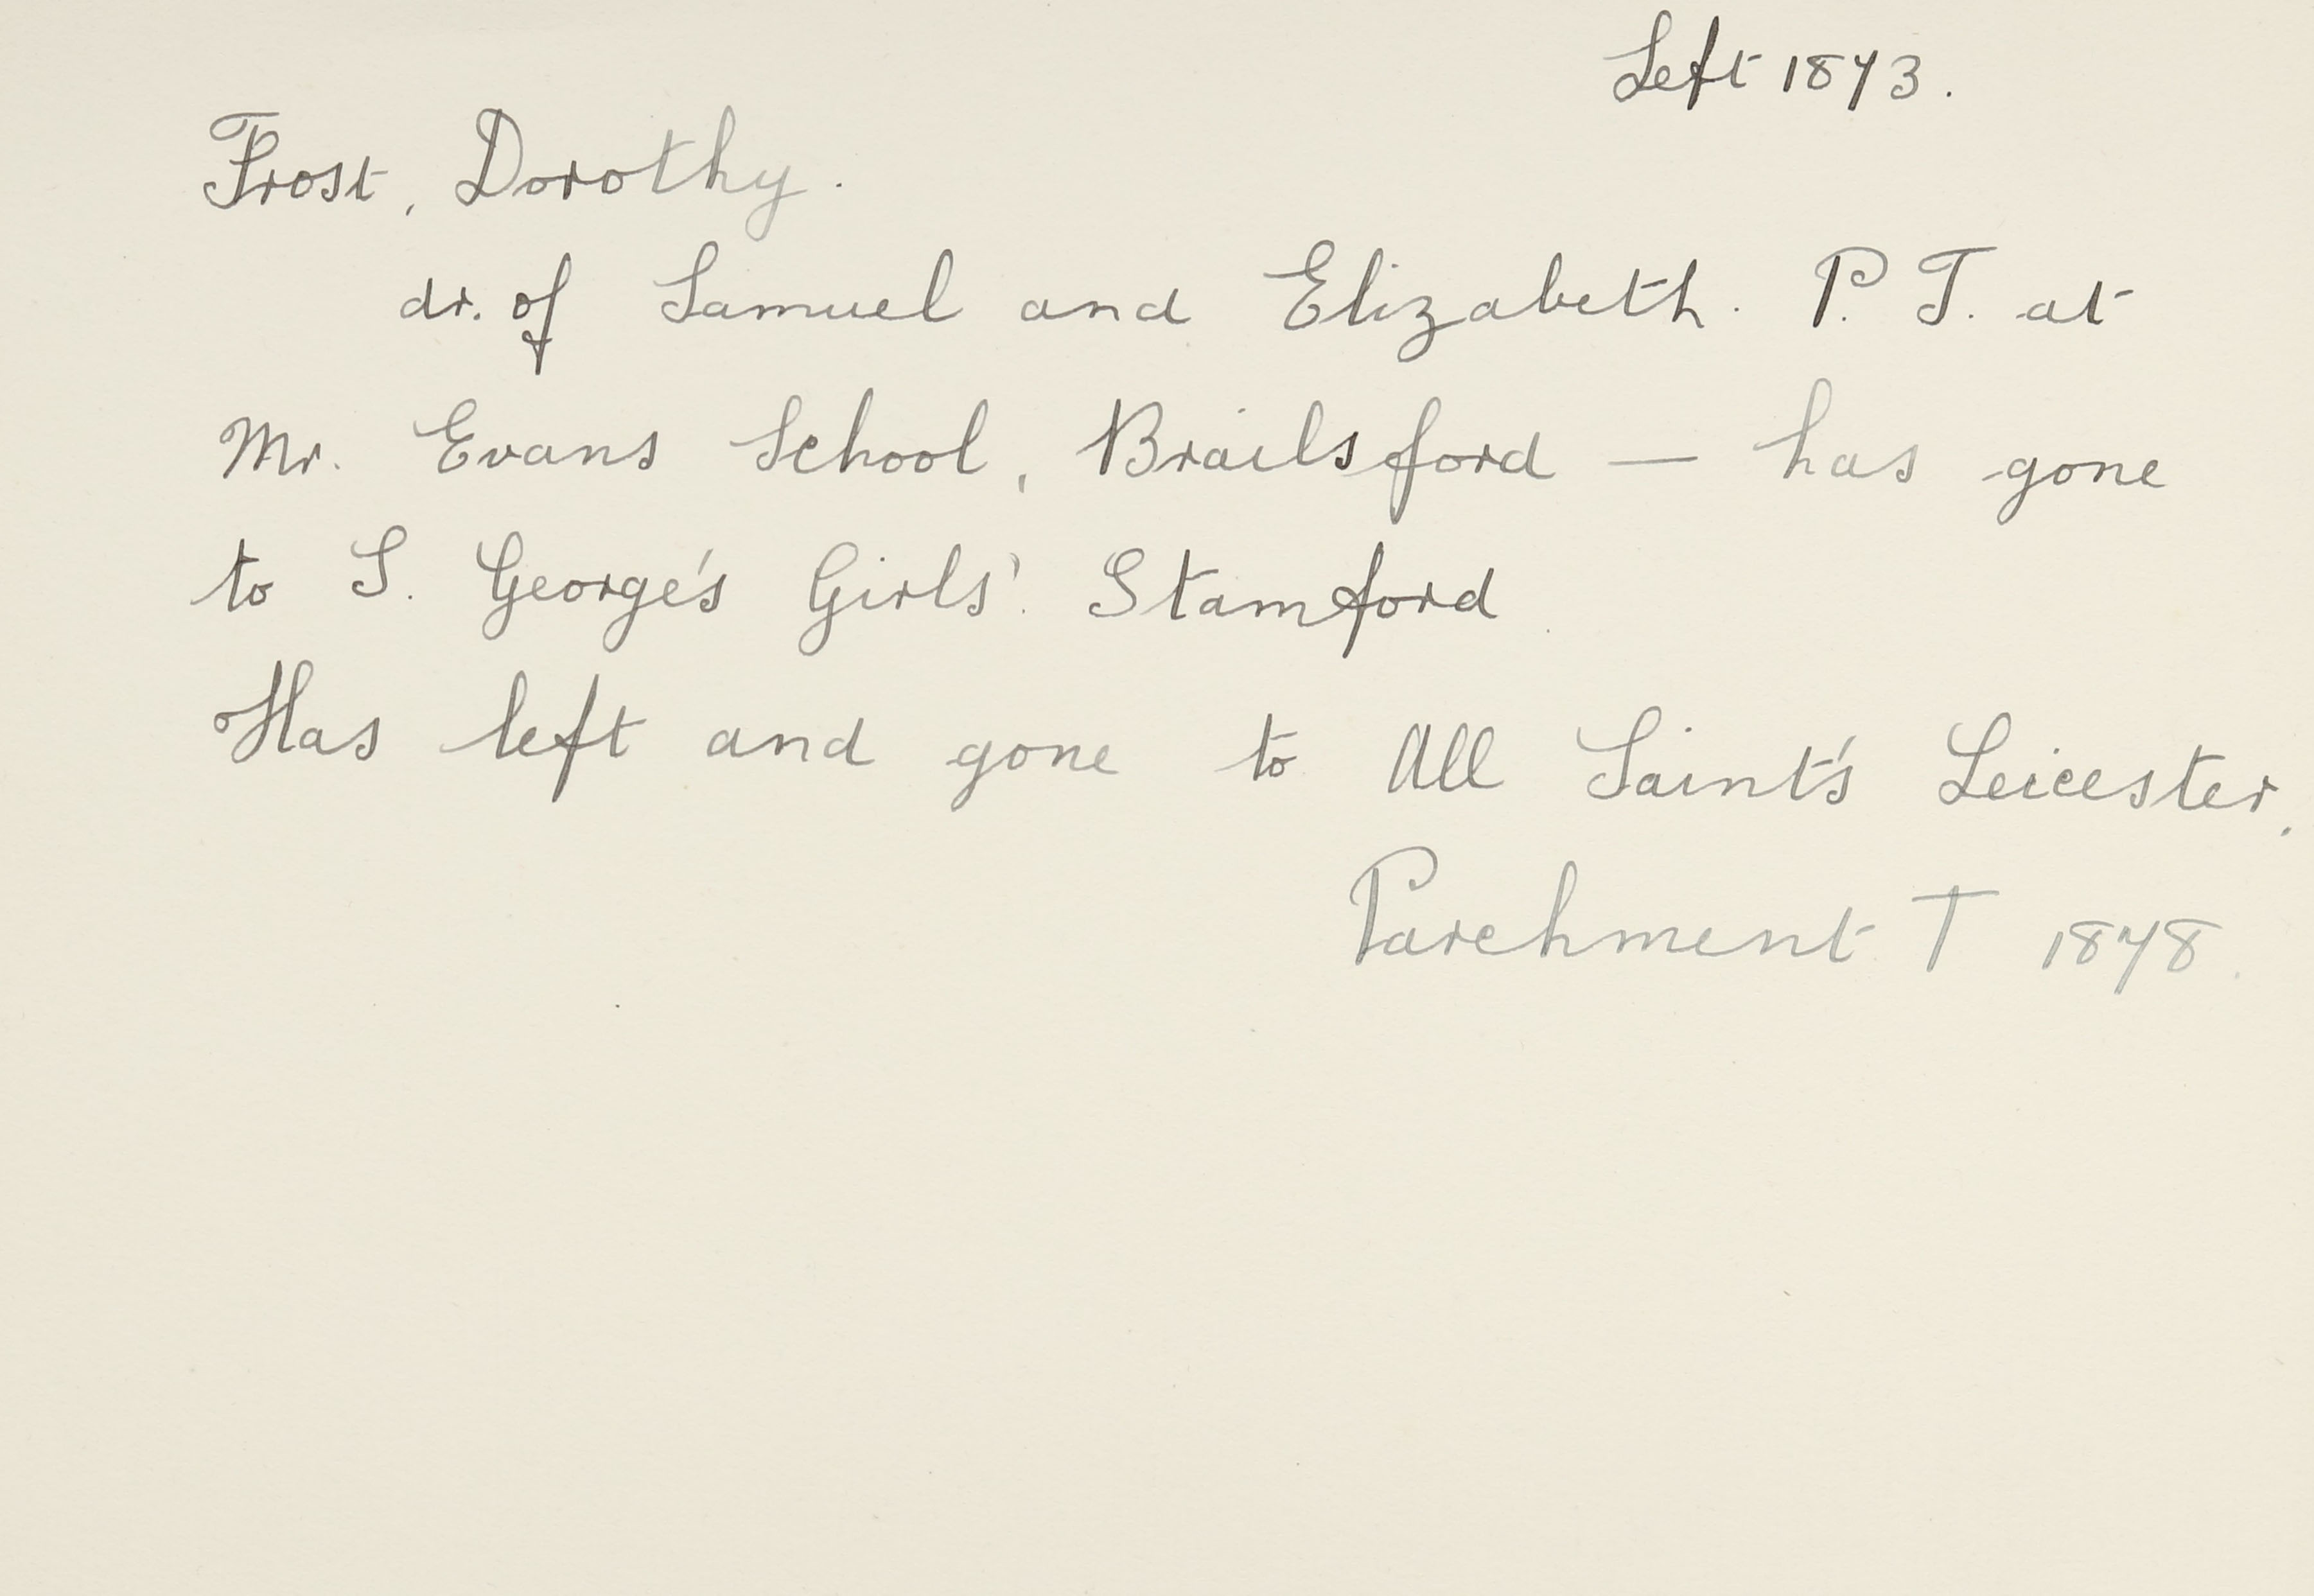 Left 1873.
Frost, Dorothy.
dr. of Samuel and Elizabeth. P. T. at
Mr. Evans School, Brailsford — has gone
to S. George's Girls'. Stamford.
Has left and gone to All Saint's Leicester,
Parchment T 1878.